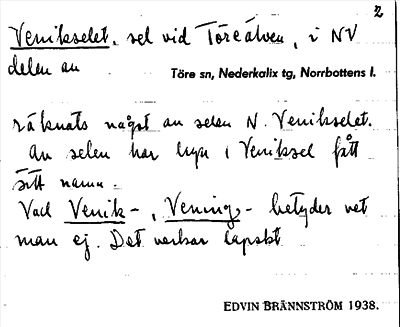 2
Venikselet, sel vid Töreälven, i NV
delen av
Töre sn, Nederkalix tg, Norrbottens l.
räknats något av selen N. Venikselet.
Av selen har byn i Veniksel fått
sitt namn.
Vad Venik-, Vening- betyder vet
man ej. Det verkar lapskt
EDVIN BRÄNNSTRÖM 1938.